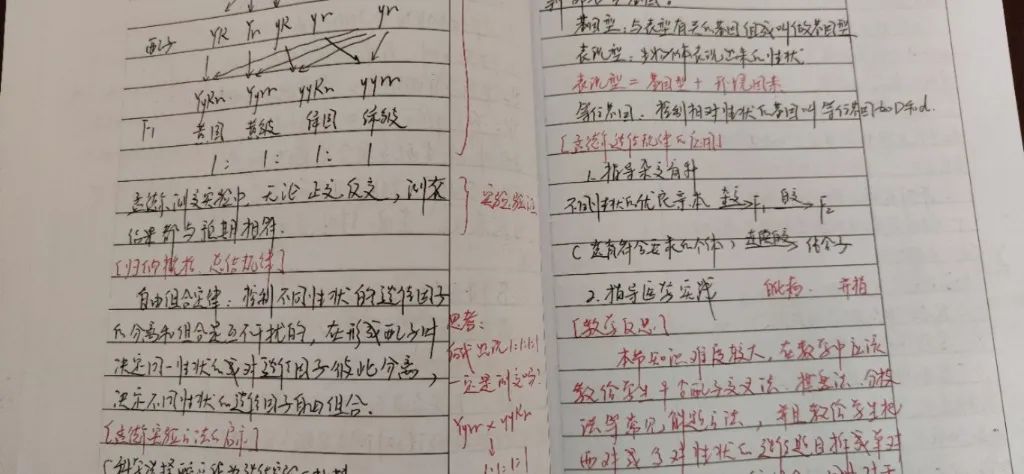 配子 YR Yr yR yr yr
YyRr Yyrr yyRr yyrr
F₁ 黄圆 黄皱 绿圆 绿皱
1: 1: 1: 1
孟德尔测交实验中,无论正交、反交,测交
结果都与预期相符。
实验验证
[归纳概括 总结规律]
自由组合定律:控制不同性状的遗传因子
的分离和组合是互不干扰的,在形成配子时
决定同一性状的成对遗传因子彼此分离,
决定不同性状的遗传因子自由组合。
[孟德尔实验方法的启示]
思考:
后代出现1:1:1:1
一定是测交吗?
Yyrr × yyRr
↓
1:1:1:1
基因型:与表型有关的基因组成叫做基因型
表现型:生物个体表现出来的性状
表现型 = 基因型 + 环境因素
等位基因:控制相对性状的基因叫等位基因 如D和d.
[孟德尔遗传规律的应用]
1. 指导杂交育种
不同性状的优良亲本 杂交→ F₁ 自交→ F₂
(选育符合要求的个体) 连续自交→ 纯合子
2. 指导医学实践
[教学反思]
本节知识难度较大,在教学中应该
教给学生 配子交叉法、棋盘法、分枝
法等常见解题方法,并且教给学生把
两对或多对性状的遗传题目拆成单对